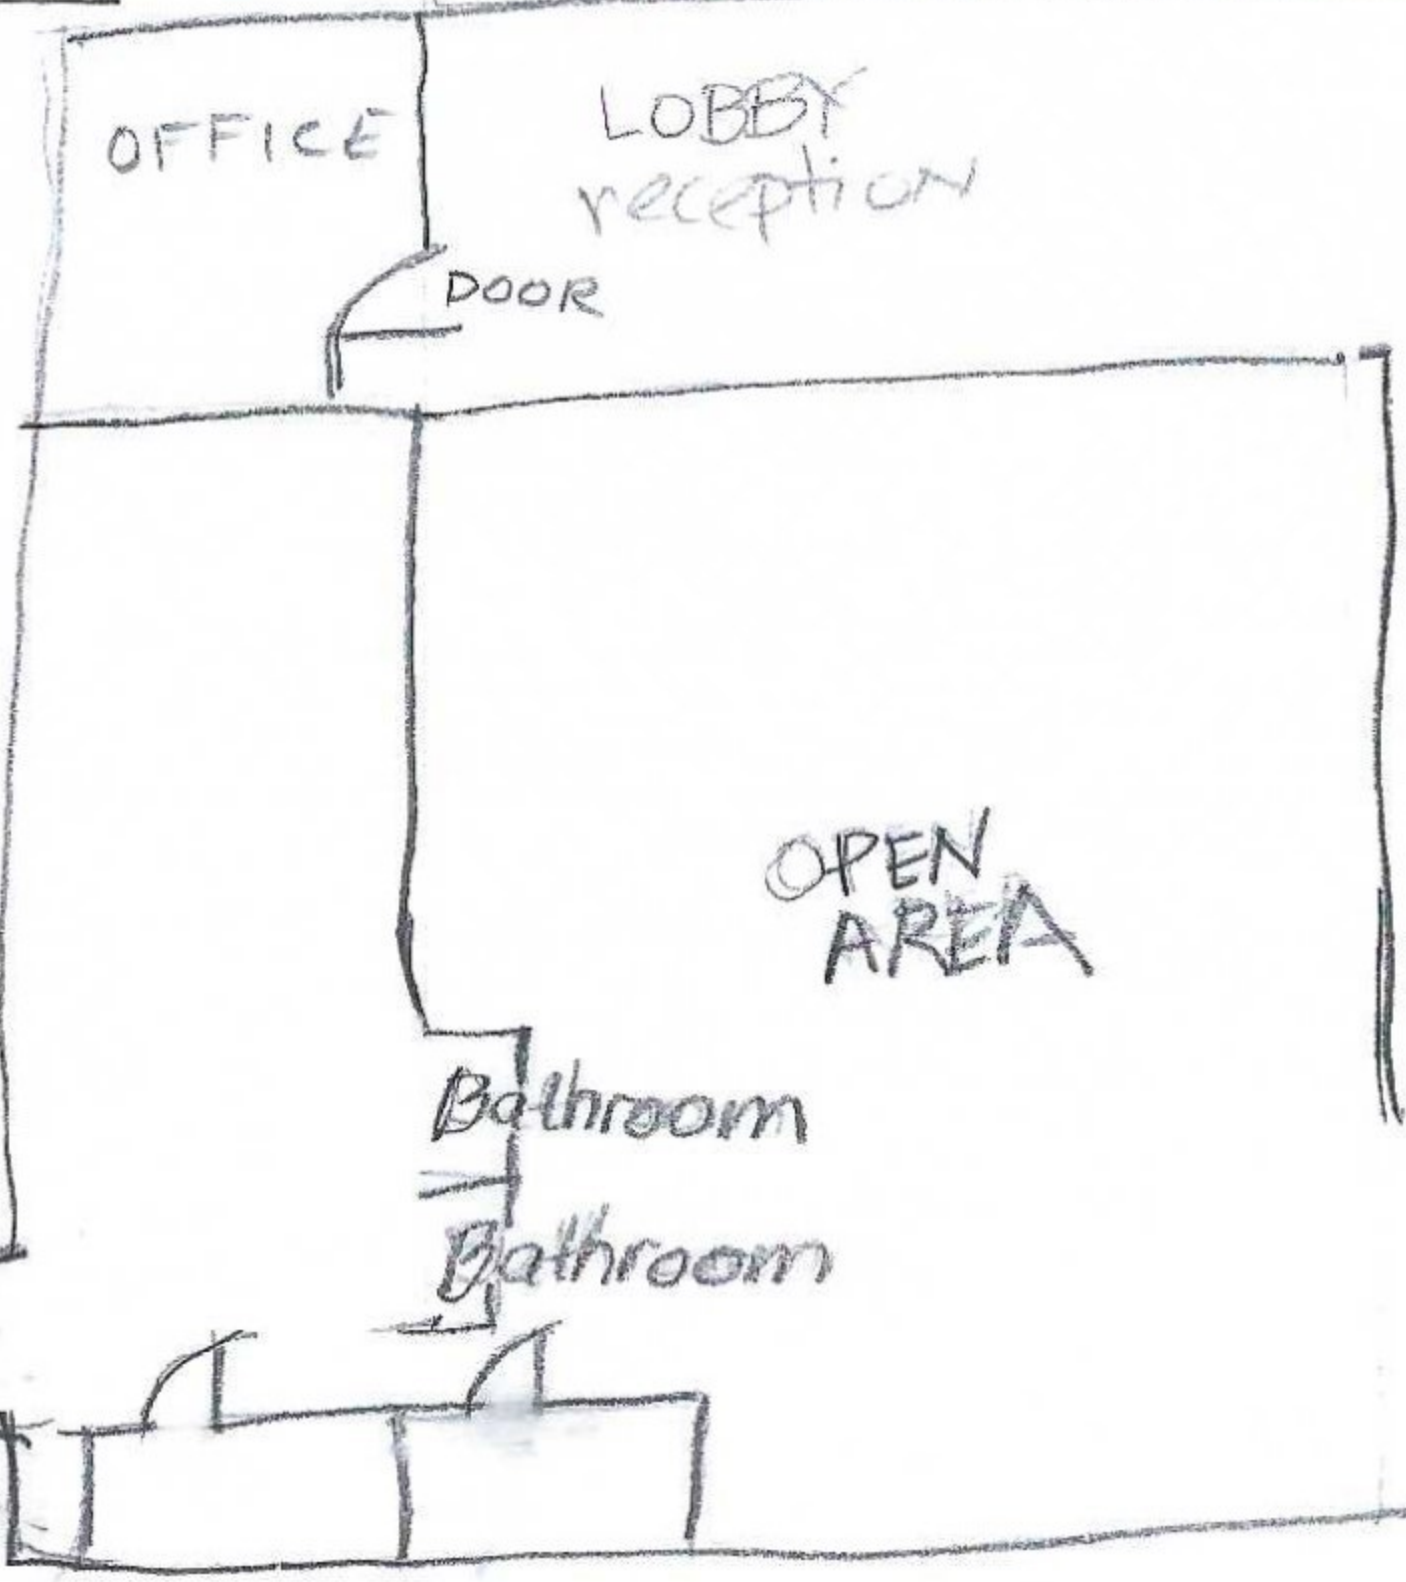 OFFICE
LOBBY
reception
DOOR
OPEN
AREA
Bathroom
Bathroom